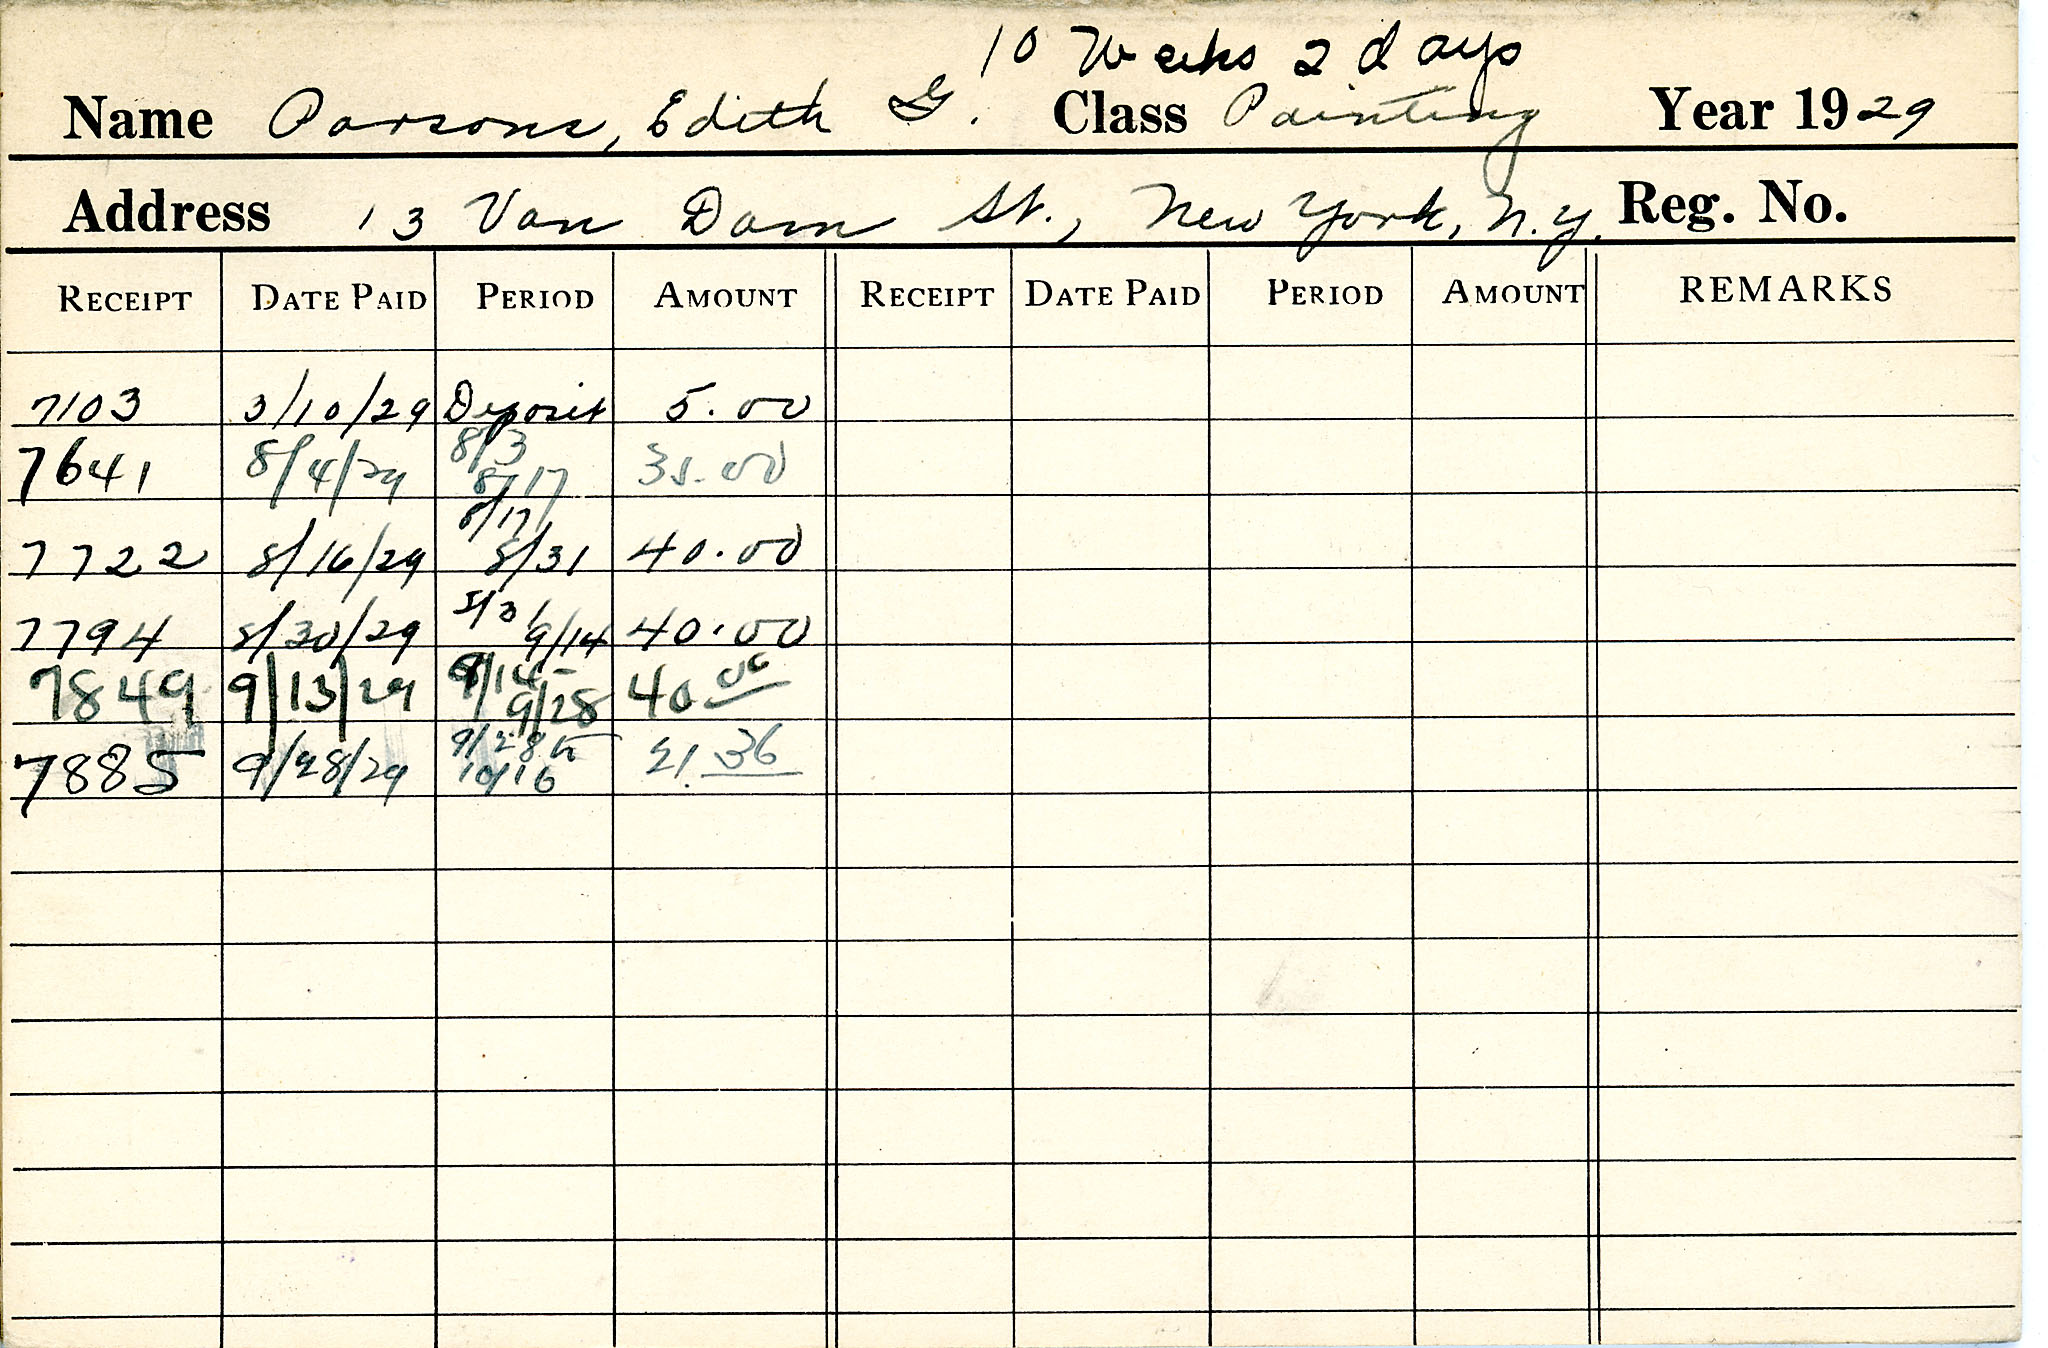 10 Weeks 2 days
Name Parsons, Edith G. Class Painting Year 1929
Address 13 Van Dam St., New York, N.Y. Reg. No.
RECEIPT DATE PAID PERIOD AMOUNT RECEIPT DATE PAID PERIOD AMOUNT REMARKS
7103 3/10/29 Deposit 5.00
8/3
7641 8/4/29 8/17 35.00
8/17
7722 8/16/29 8/31 40.00
8/31
7794 8/30/29 9/14 40.00
9/14-
7849 9/13/29 9/28 40 00
9/28 to
7885 9/28/29 10/16 21.36